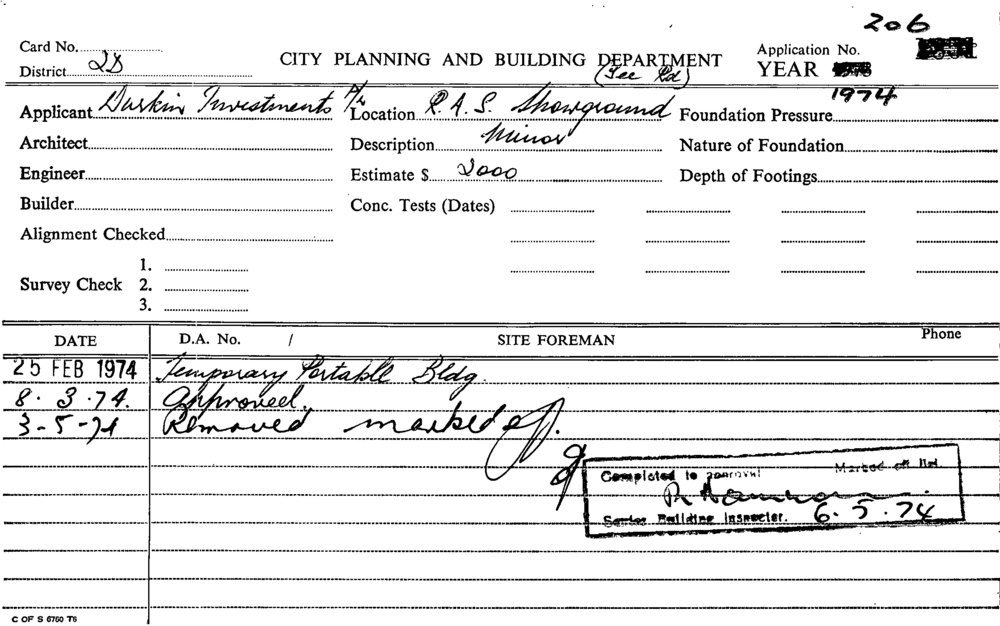 206
Card No.
CITY PLANNING AND BUILDING DEPARTMENT
Application No.
District 2D
(Fee Pd)
YEAR 1974
Applicant Durkin Investments P/L
Location R.A.S. Showground
Foundation Pressure
Architect
Description Minor
Nature of Foundation
Engineer
Estimate $ 2000
Depth of Footings
Builder
Conc. Tests (Dates)
Alignment Checked
Survey Check
1.
2.
3.
DATE
D.A. No. /
SITE FOREMAN
Phone
25 FEB 1974 Temporary Portable Bldg.
8.3.74. Approved.
3-5-74 Removed marked off.
Completed to approval Marked off
Senior Building Inspector. 6.5.74
C OF S 6760 T6